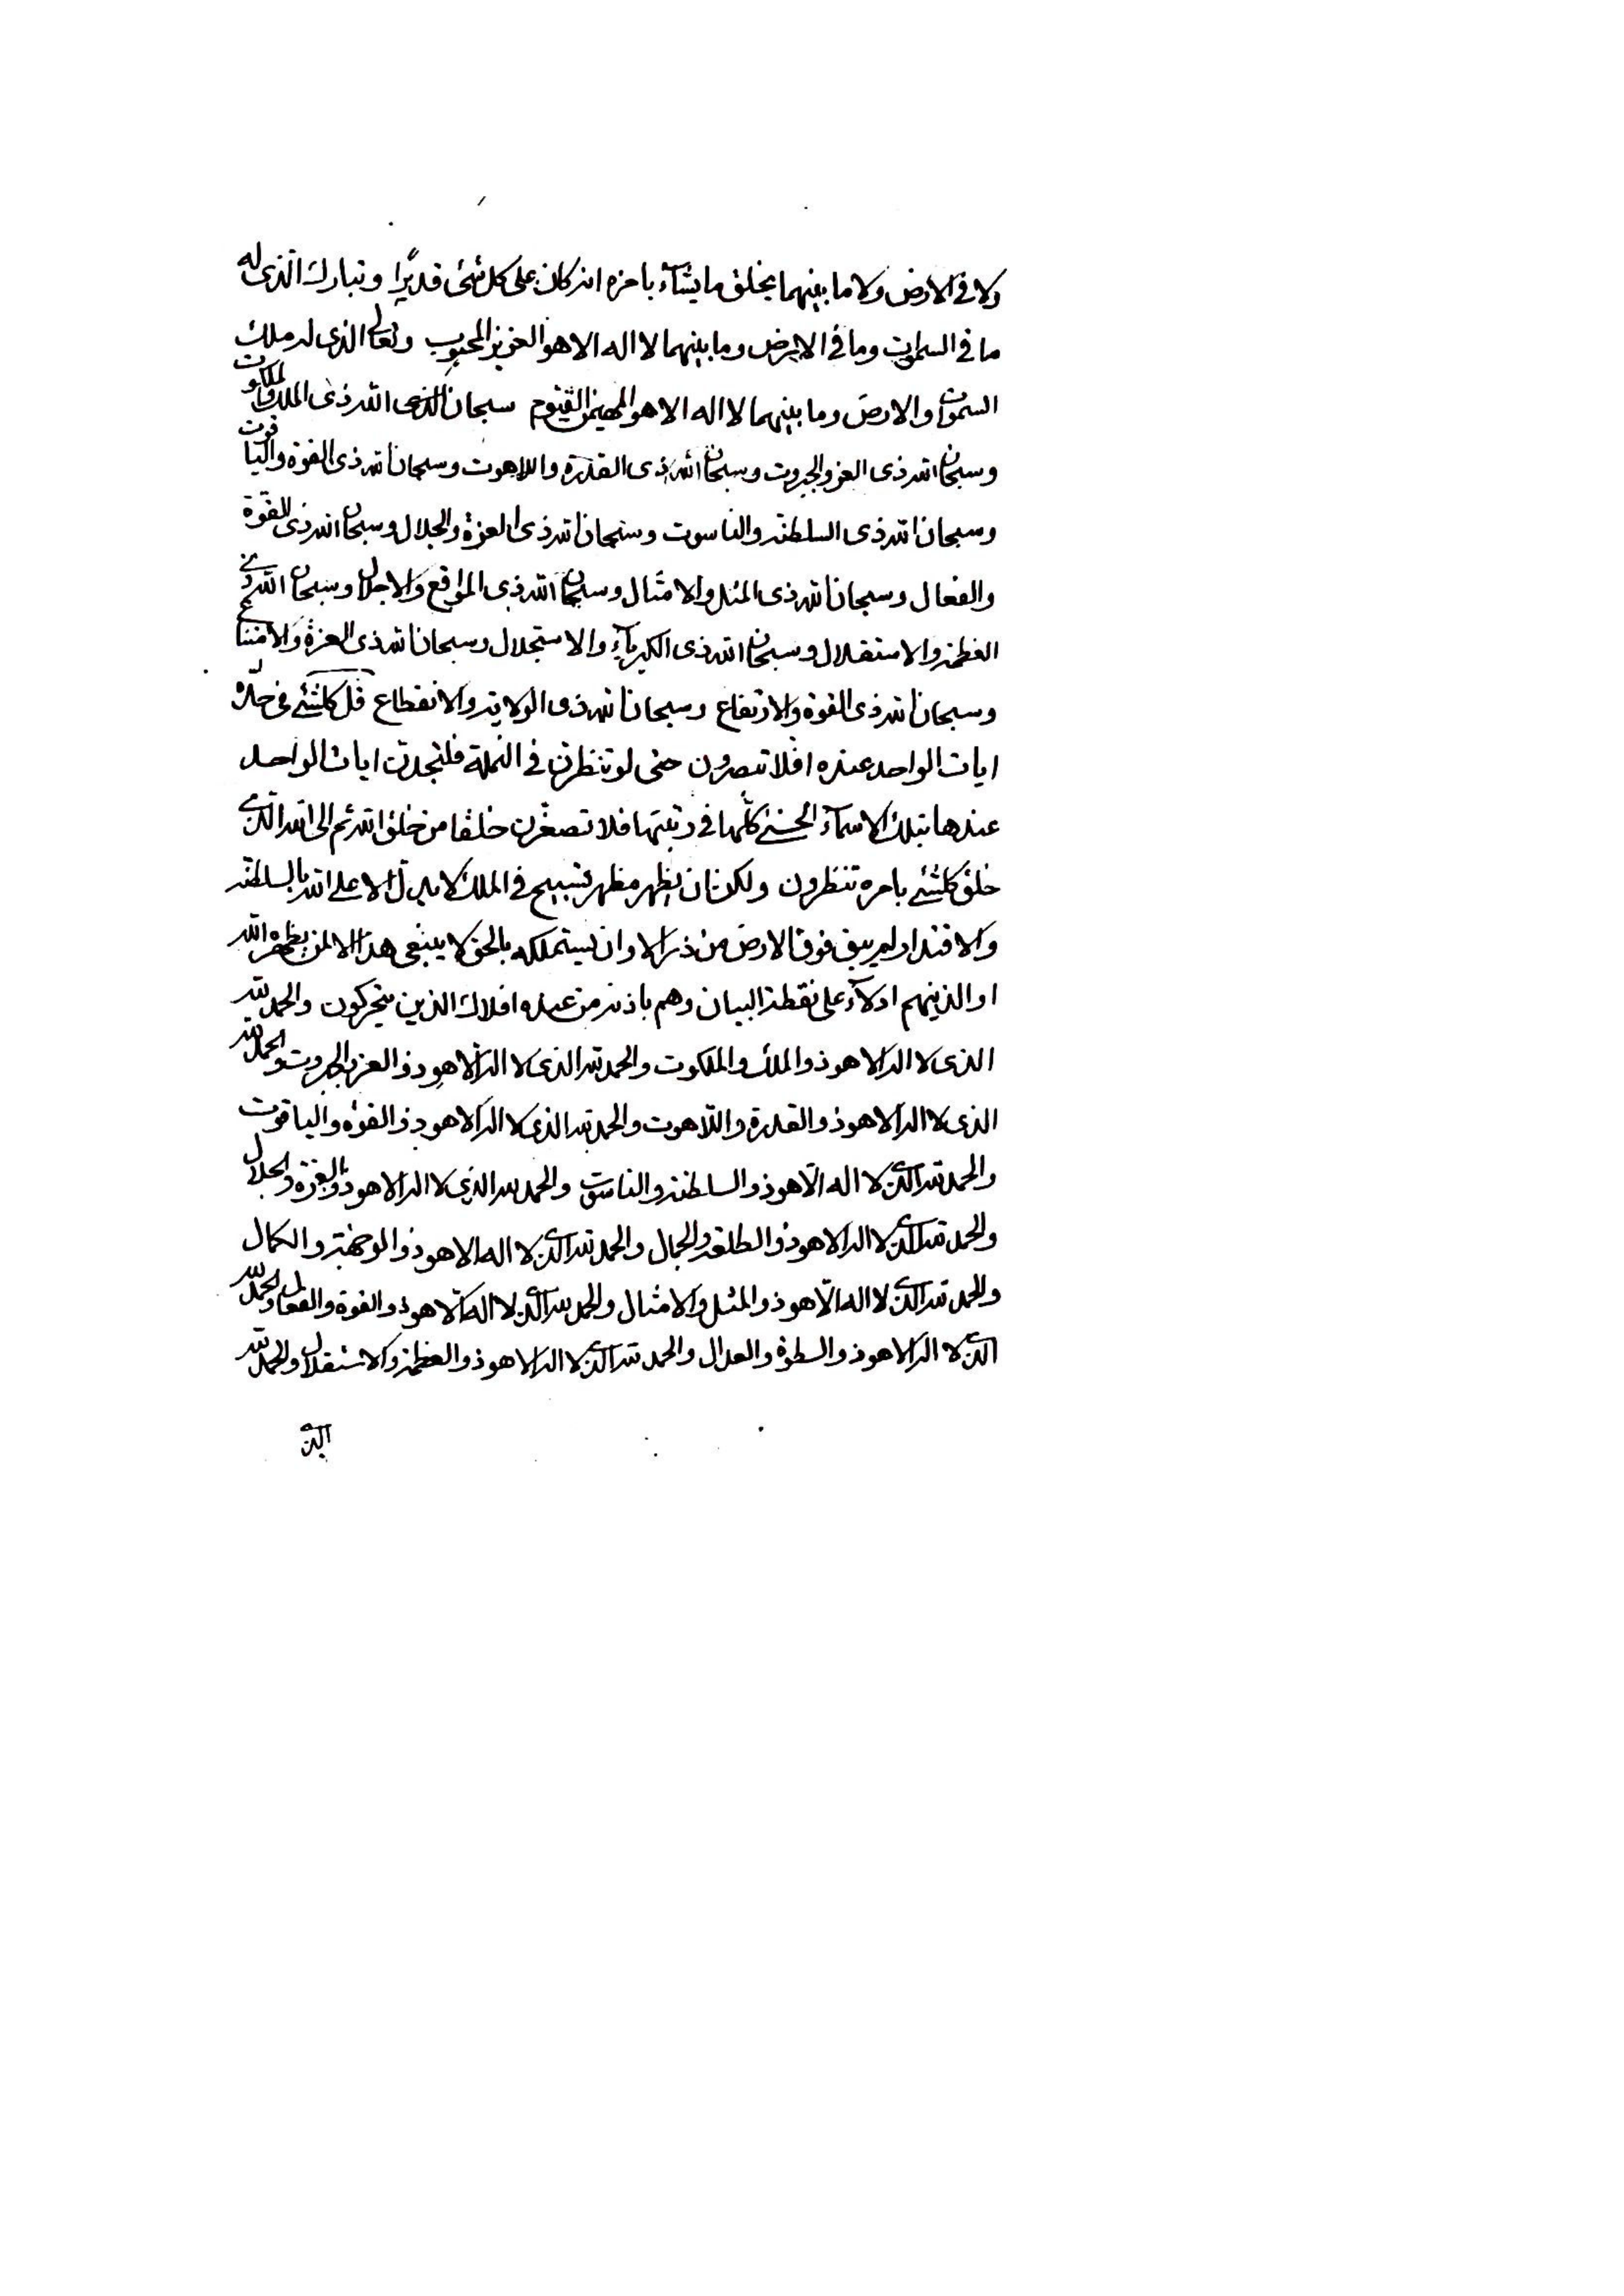 ولا في الارض ولا ما بينهما يخلق ما يشآء بامره انه كان على كل شئ قديرًا وتبارك الذى له
ما في السموات وما في الارض وما بينهما لا اله الا هو العزيز المحبوب وتعالى الذى له ملك
السموات والارض وما بينهما لا اله الا هو المهيمن القيوم سبحان الله ذى الملك والملكوت
وسبحان الله ذى العز والجبروت وسبحان الله ذى القدرة واللاهوت وسبحان الله ذى القوة والياقوت
وسبحان الله ذى السلطنه والناسوت وسبحان الله ذى العزة والجلال وسبحان الله ذى القوة
والفعال وسبحان الله ذى المثل والامثال وسبحان الله ذى المواقع والاجلال وسبحان الله ذى
العظمه والاستقلال وسبحان الله ذى الكبريآء والاستجلال وسبحان الله ذى العزة والامتناع
وسبحان الله ذى القوة والارتفاع وسبحان الله ذى الولايه والانقطاع قل كلشئ في حده
ايات الواحد عنده افلا تبصرون حتى لو تنظرن في النملة فلتجدن ايات الواحد
عندها بتلك الاسمآء الحسنى كلها في رتبتها فلا تصغرن خلقا من خلق الله ثم الى الله الذى
خلق كلشئ بامره تنظرون ولكن ان يظهر مظهر تسبيح في الملك لا يدل الا على الله بالسلطنه
والاقتدار لم يبق فوق الارض من ذر الا وان يستملكه بالحق لا ينبغى هذا الا لمن يظهره الله
او الذينهم ادلآء على نقطة البيان وهم باذنه من عنده افلاك الذين يتحركون والحمد لله
الذى لا اله الا هو ذو الملك والملكوت والحمد لله الذى لا اله الا هو ذو العز والجبروت والحمد لله
الذى لا اله الا هو ذو القدرة واللاهوت والحمد لله الذى لا اله الا هو ذو القوة والياقوت
والحمد لله الذى لا اله الا هو ذو السلطنه والناسوت والحمد لله الذى لا اله الا هو ذو العزة والجلال
والحمد لله الذى لا اله الا هو ذو الطلعه والجمال والحمد لله الذى لا اله الا هو ذو الوجهة والكمال
والحمد لله الذى لا اله الا هو ذو المثل والامثال والحمد لله الذى لا اله الا هو ذو القوة والفعال والحمد لله
الذى لا اله الا هو ذو السطوة والعدال والحمد لله الذى لا اله الا هو ذو العظمة والاستقلال والحمد لله
الذى